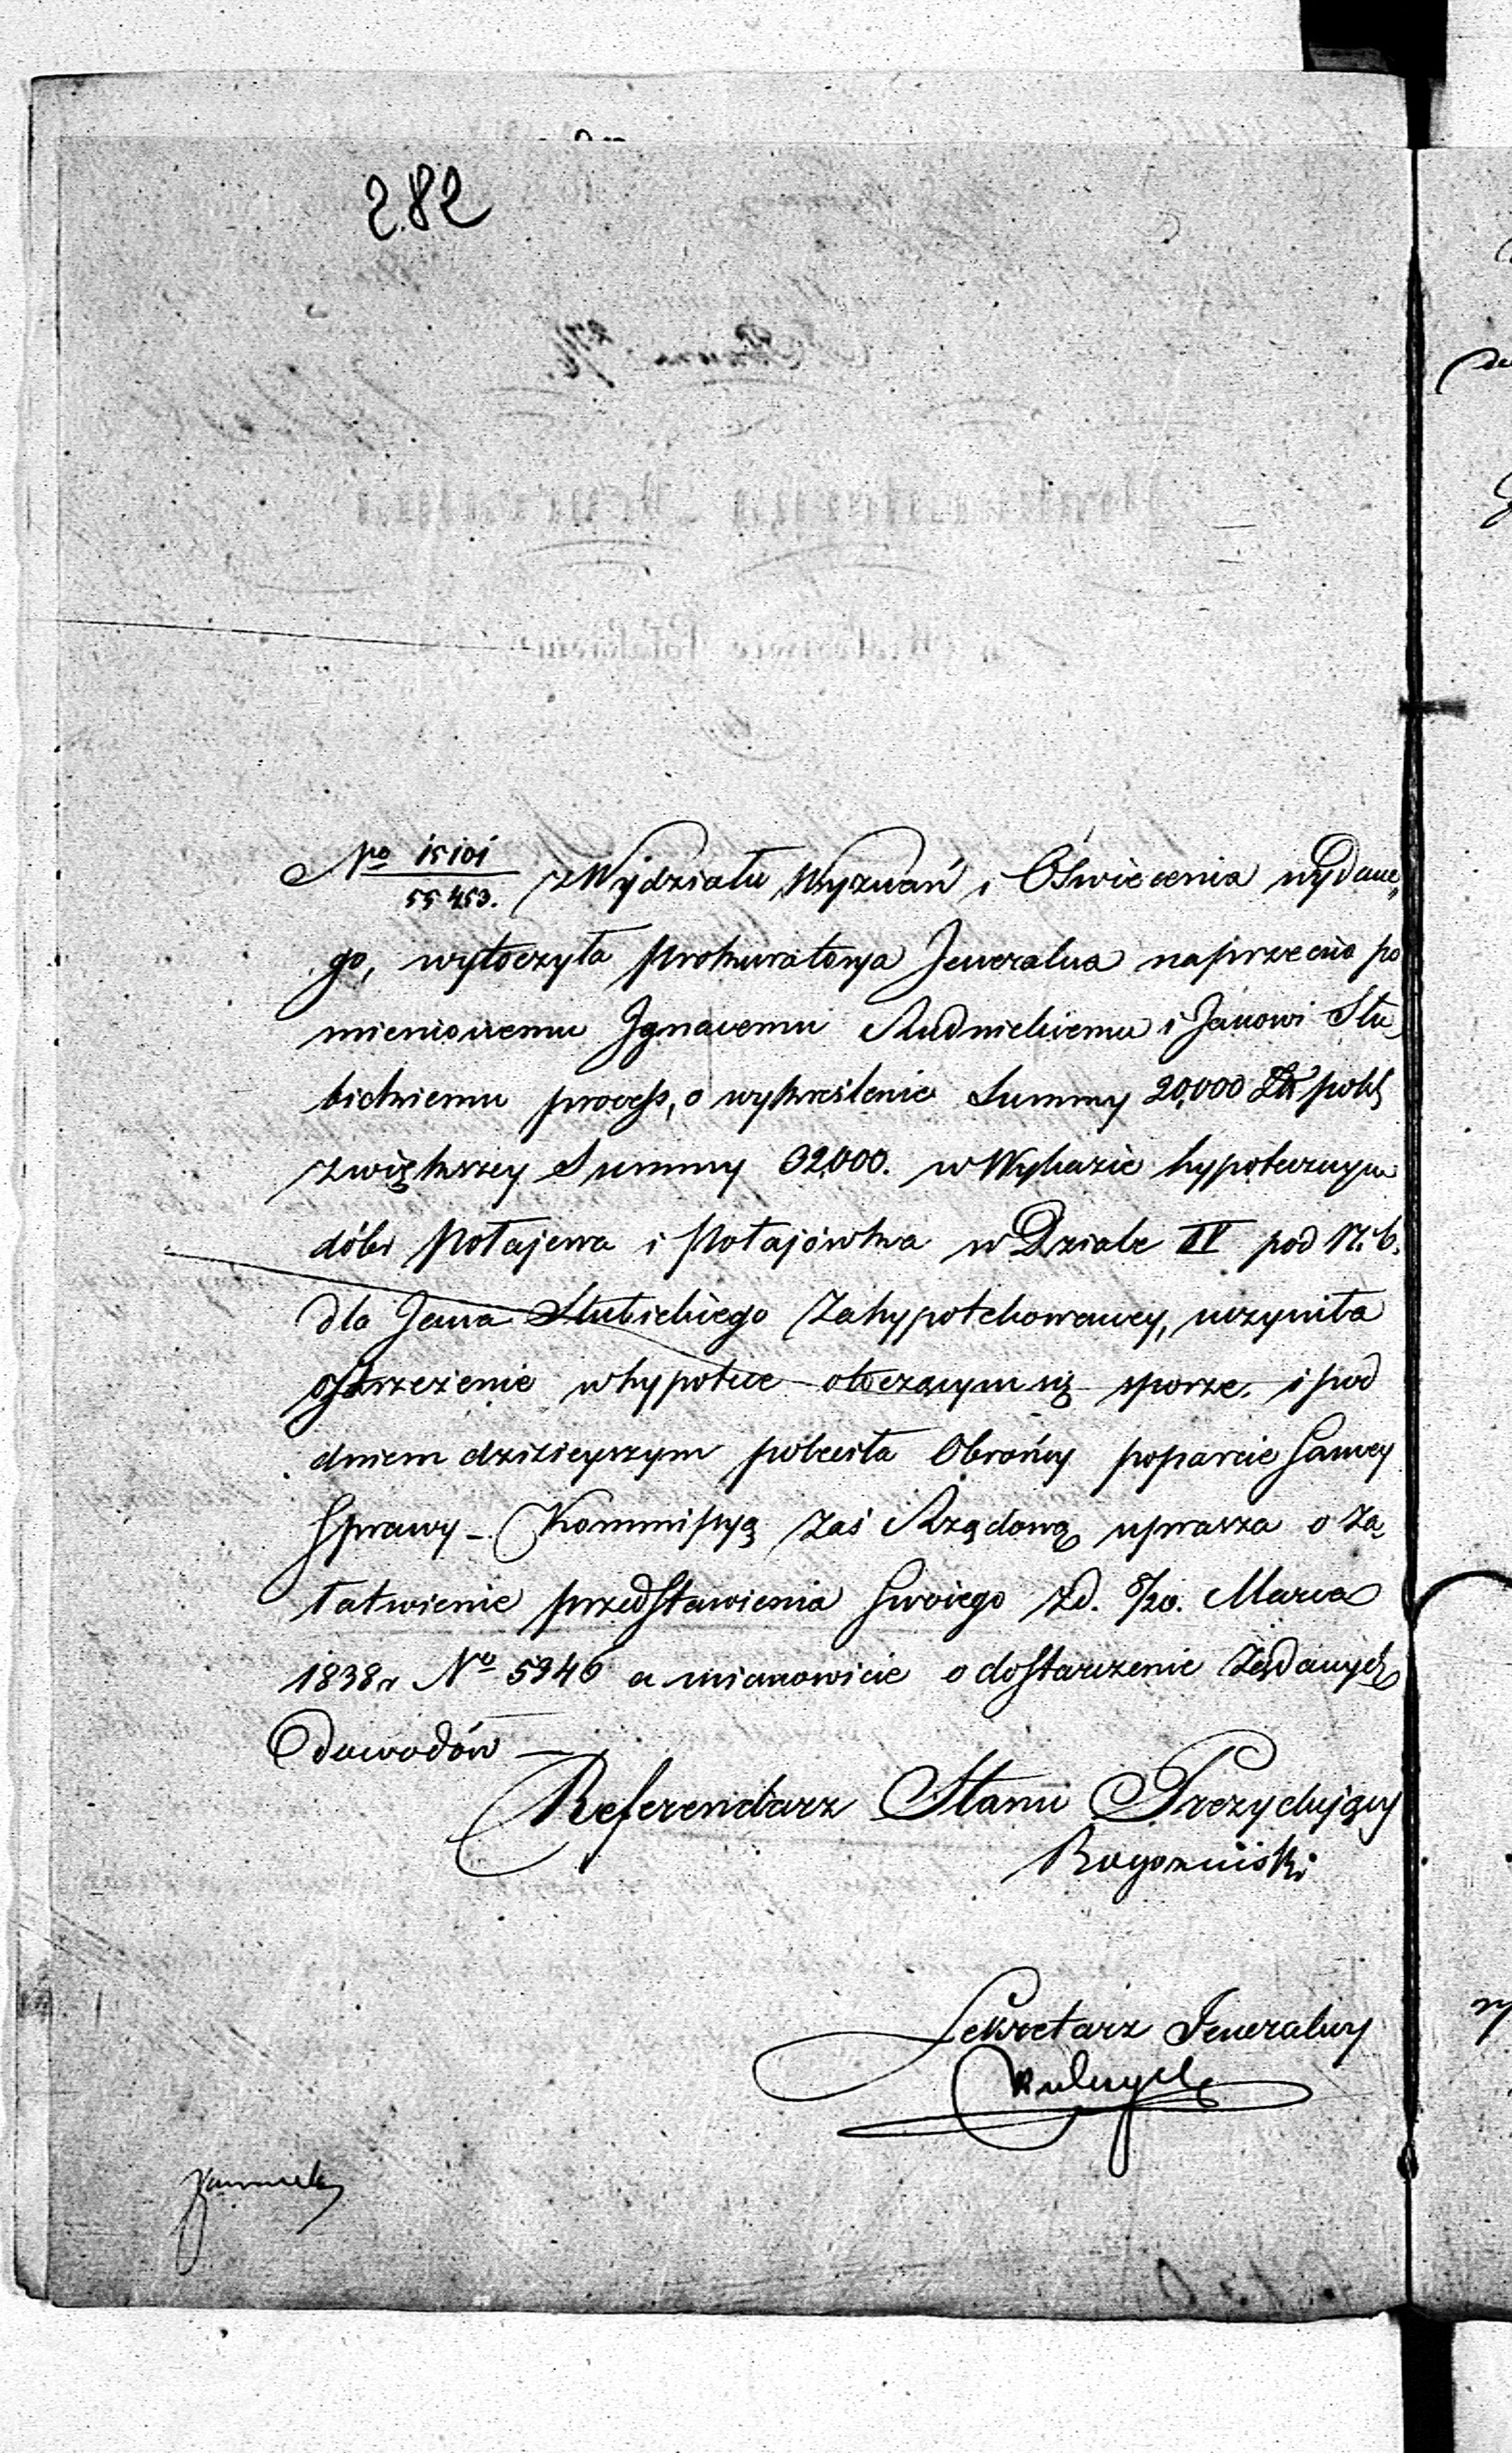 282
No 15101/55453. z Wydziału Wyznań i Oświecenia wydane„
go, wytoczyła Prokuratorya Jeneralna naprzeciw po
mienionemu Ignacemu Rudnickiemu i Janowi Słu
bickiemu process, o wykreślenie Summy 20,000 Złt polsk
z większey Summy 32000. w Wykazie hypotecznym
dóbr Połajewa i Połajówka w Dziale IV pod N. 6.
dla Jana Słubickiego zahypotekowaney, uczyniła
ostrzeżenie w hypotece o toczącym się sporze, i pod
dniem dzisieyszym poleciła Obrońcy poparcie samey
Sprawy – Kommissyą zaś Rządową uprasza o za„
łatwienie przedstawienia swoiego z d. 8/20. Marca
1838 r No 5946 a mianowicie o dostarczenie żądanych
dowodów —
Referendarz Stanu Prezydujący
Sekretarz Jeneralny